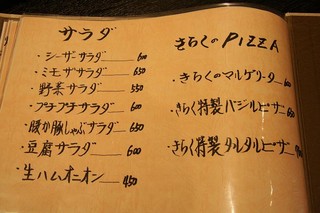 サラダ
・シーザーサラダ 600
・ミモザサラダ 650
・野菜サラダ 550
・プチプチサラダ 600
・暖か豚しゃぶサラダ 650
・豆腐サラダ 600
・生ハムオニオン 450
きらくのPIZZA
・きらくのマルゲリータ 600
・きらく特製バジルピザ 650
・きらく特製タルタルピザ